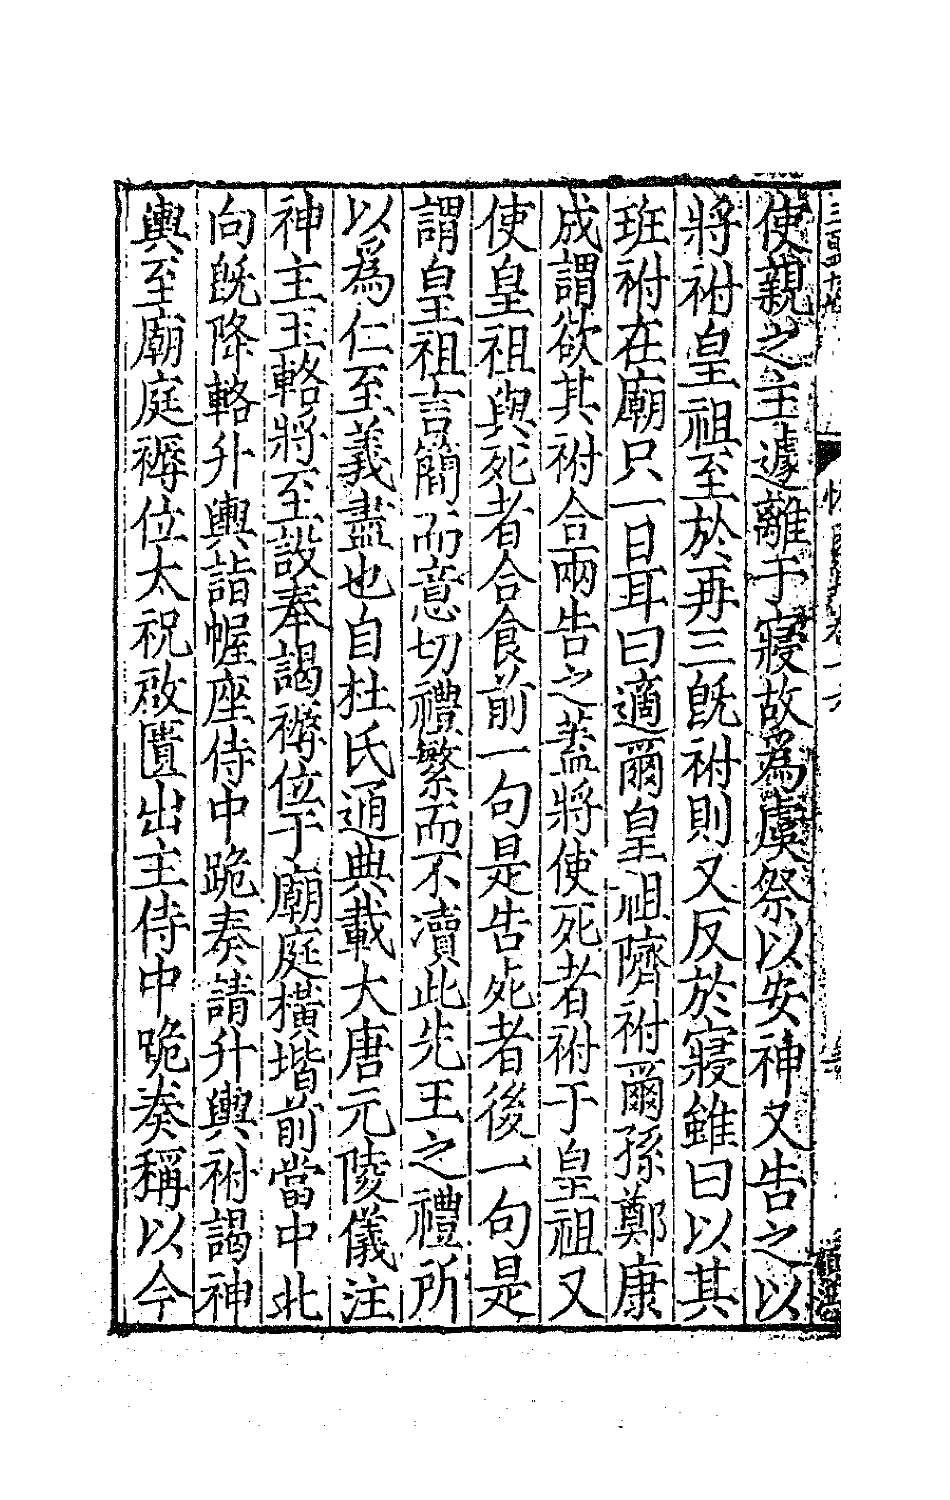 使親之主遽離于寢故為虞祭以安神又告之以
將祔皇祖至於再三旣祔則又反於寢雖曰以其
班祔在廟只一日耳曰適爾皇祖隮祔爾孫鄭康
成謂欲其祔合兩告之蓋將使死者祔于皇祖又
使皇祖與死者合食前一句是告死者後一句是
謂皇祖言簡而意切禮繁而不瀆此先王之禮所
以為仁至義盡也自杜氏通典載大唐元陵儀注
神主玉輅將至設奉謁褥位于廟庭橫堦前當中北
向旣降輅升輿詣幄座侍中跪奏請升輿祔謁神
輿至廟庭褥位太祝啟匱出主侍中跪奏稱以今